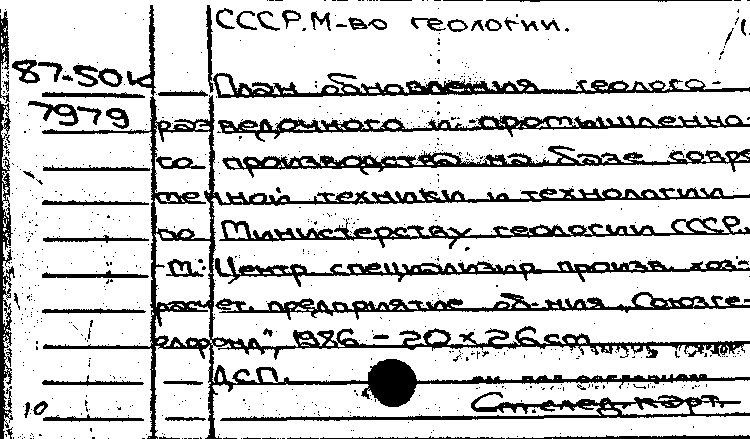 СССР. М-во геологии.
87-50К План обновления геолого-
7979 разведочного и промышленно-
го производства на базе совре
менной техники и технологии
по Министерству геологии СССР.
-М.: Центр специализир. произв. хоз-
расчет. предприятие об-ния "Союзге-
олфонд", 1986 - 20 x 26 cm
ДСП.
10 См. след. карт.